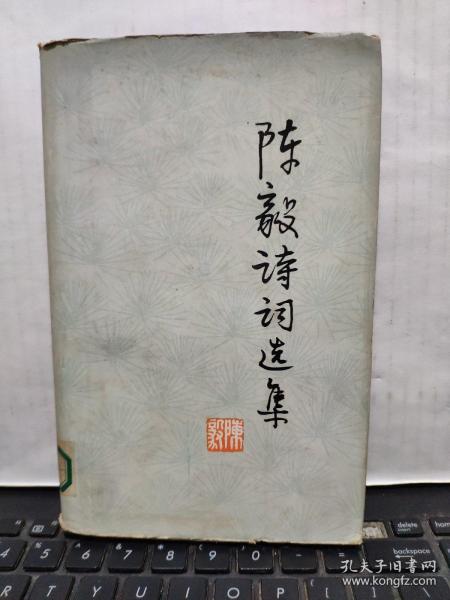 陈毅诗词选集
陳毅
delete
backspace
home
4 5 6 7 8 9 0
R T Y U I O P
孔夫子旧书网
www.kongfz.com